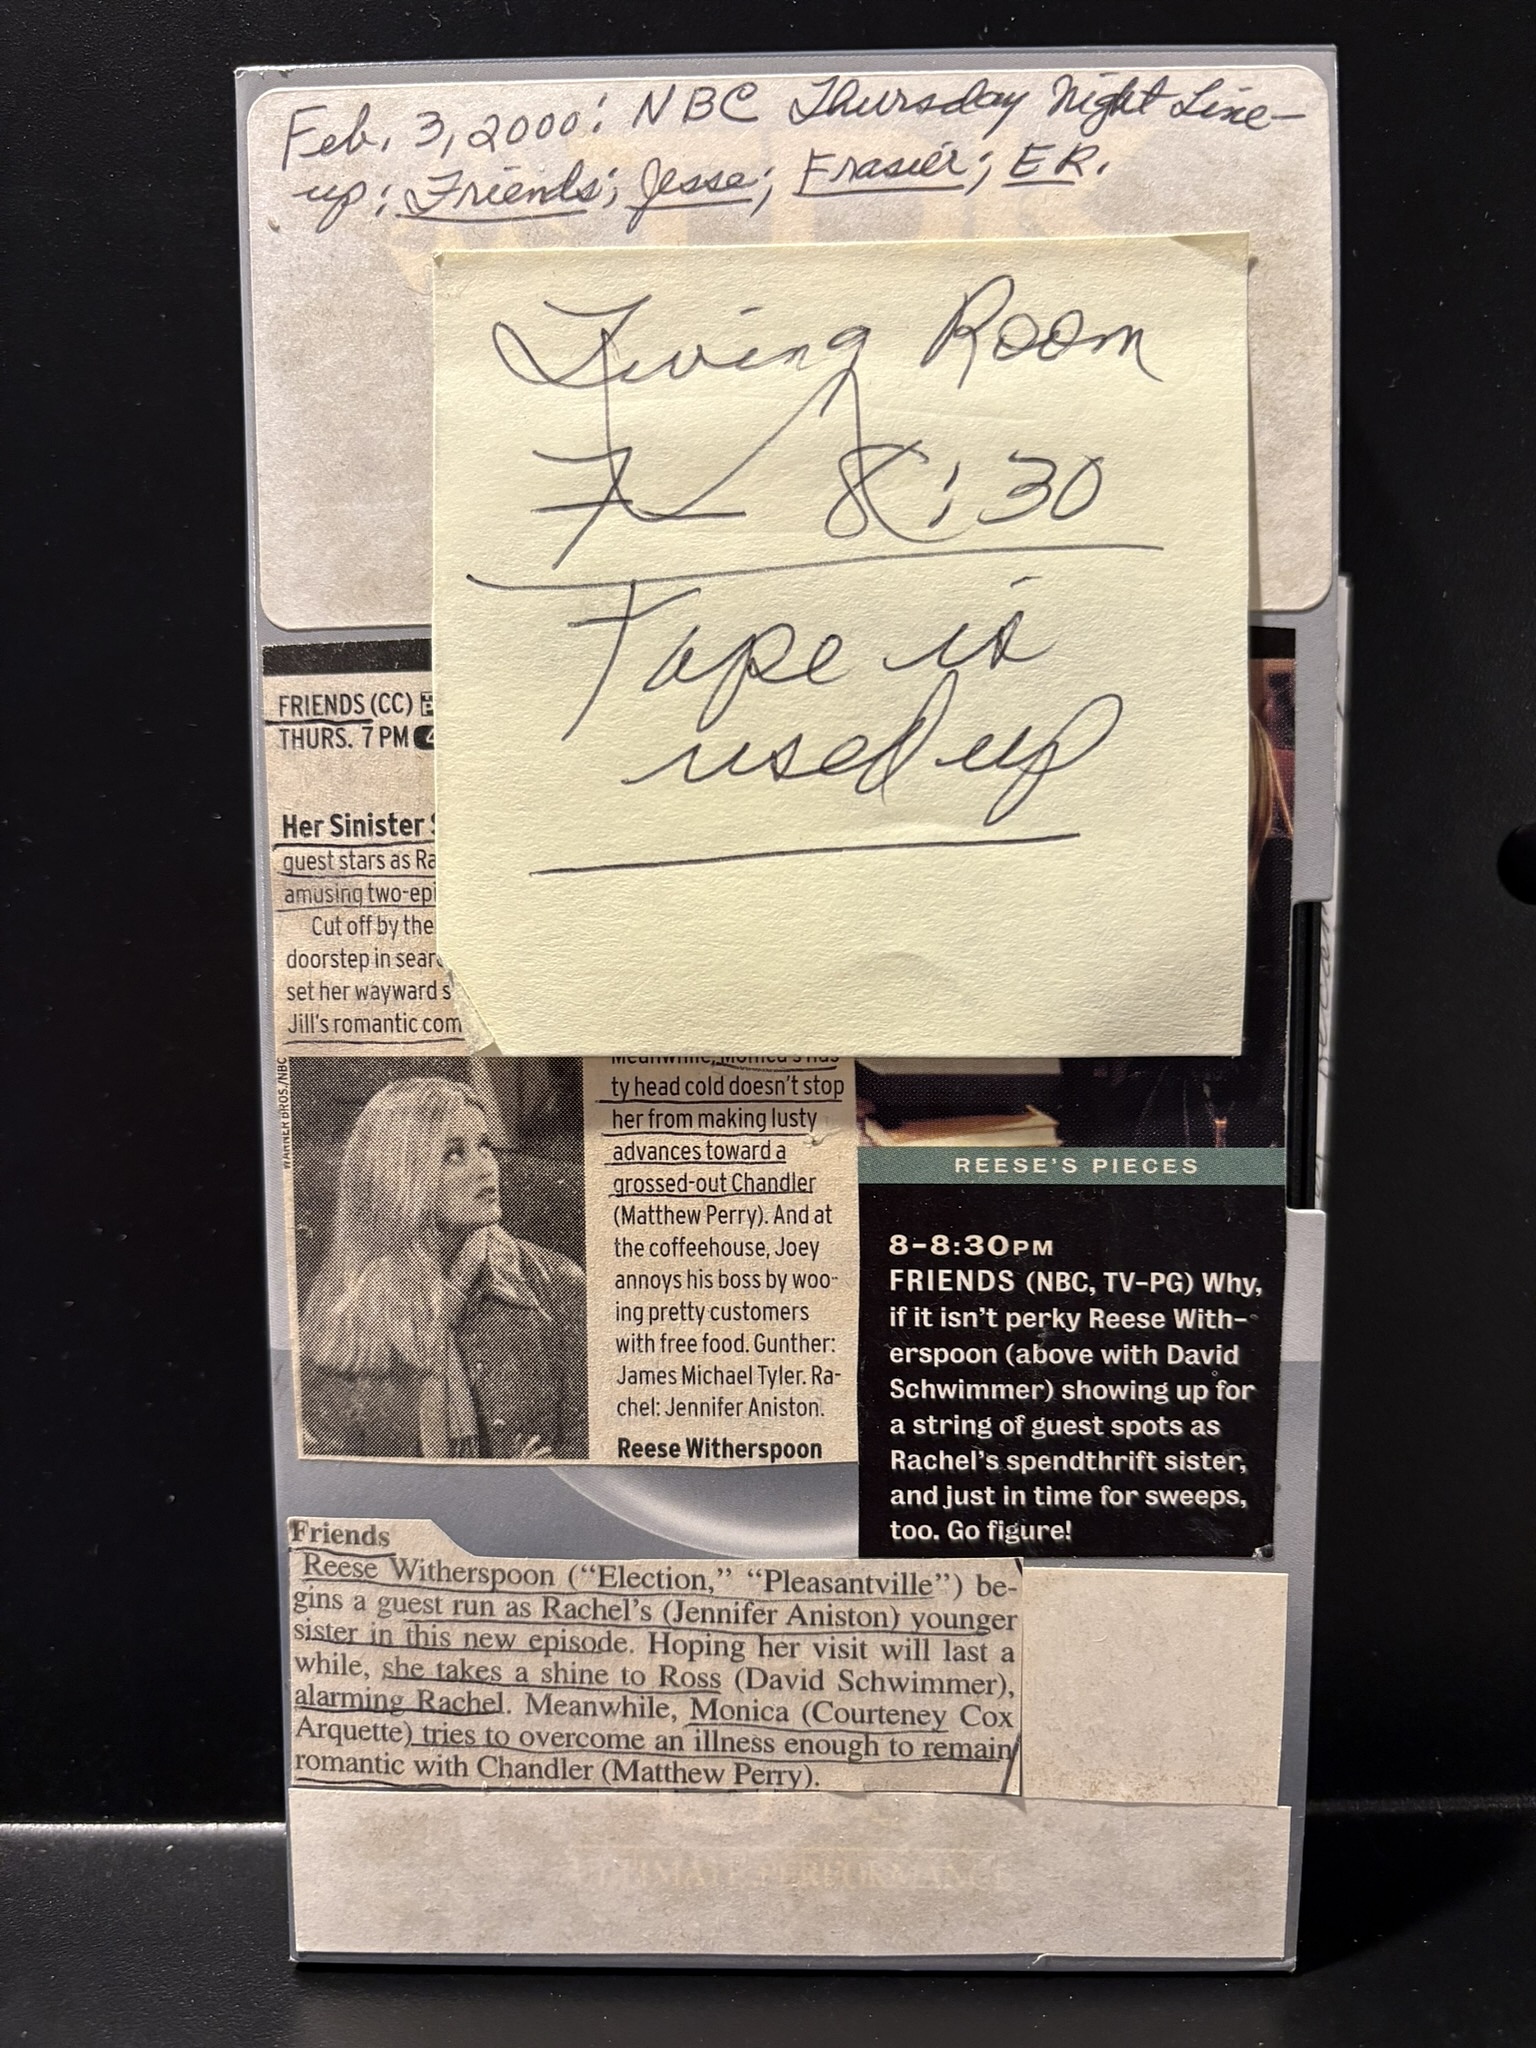 Feb. 3, 2000: NBC Thursday Night Line-
up: Friends; Jesse; Frasier; ER.
Living Room
7 — 8:30
Tape is
used up
FRIENDS (CC)
THURS. 7 PM
Her Sinister
guest stars as Ra
amusing two-epi
Cut off by the
doorstep in sear
set her wayward s
Jill's romantic com
WARNER BROS./NBC
Meanwhile, Monica's nas
ty head cold doesn't stop
her from making lusty
advances toward a
grossed-out Chandler
(Matthew Perry). And at
the coffeehouse, Joey
annoys his boss by woo-
ing pretty customers
with free food. Gunther:
James Michael Tyler. Ra-
chel: Jennifer Aniston.
Reese Witherspoon
REESE'S PIECES
8–8:30PM
FRIENDS (NBC, TV–PG) Why,
if it isn't perky Reese With-
erspoon (above with David
Schwimmer) showing up for
a string of guest spots as
Rachel's spendthrift sister,
and just in time for sweeps,
too. Go figure!
Friends
Reese Witherspoon ("Election," "Pleasantville") be-
gins a guest run as Rachel's (Jennifer Aniston) younger
sister in this new episode. Hoping her visit will last a
while, she takes a shine to Ross (David Schwimmer),
alarming Rachel. Meanwhile, Monica (Courteney Cox
Arquette) tries to overcome an illness enough to remain
romantic with Chandler (Matthew Perry).
ULTIMATE PERFORMANCE